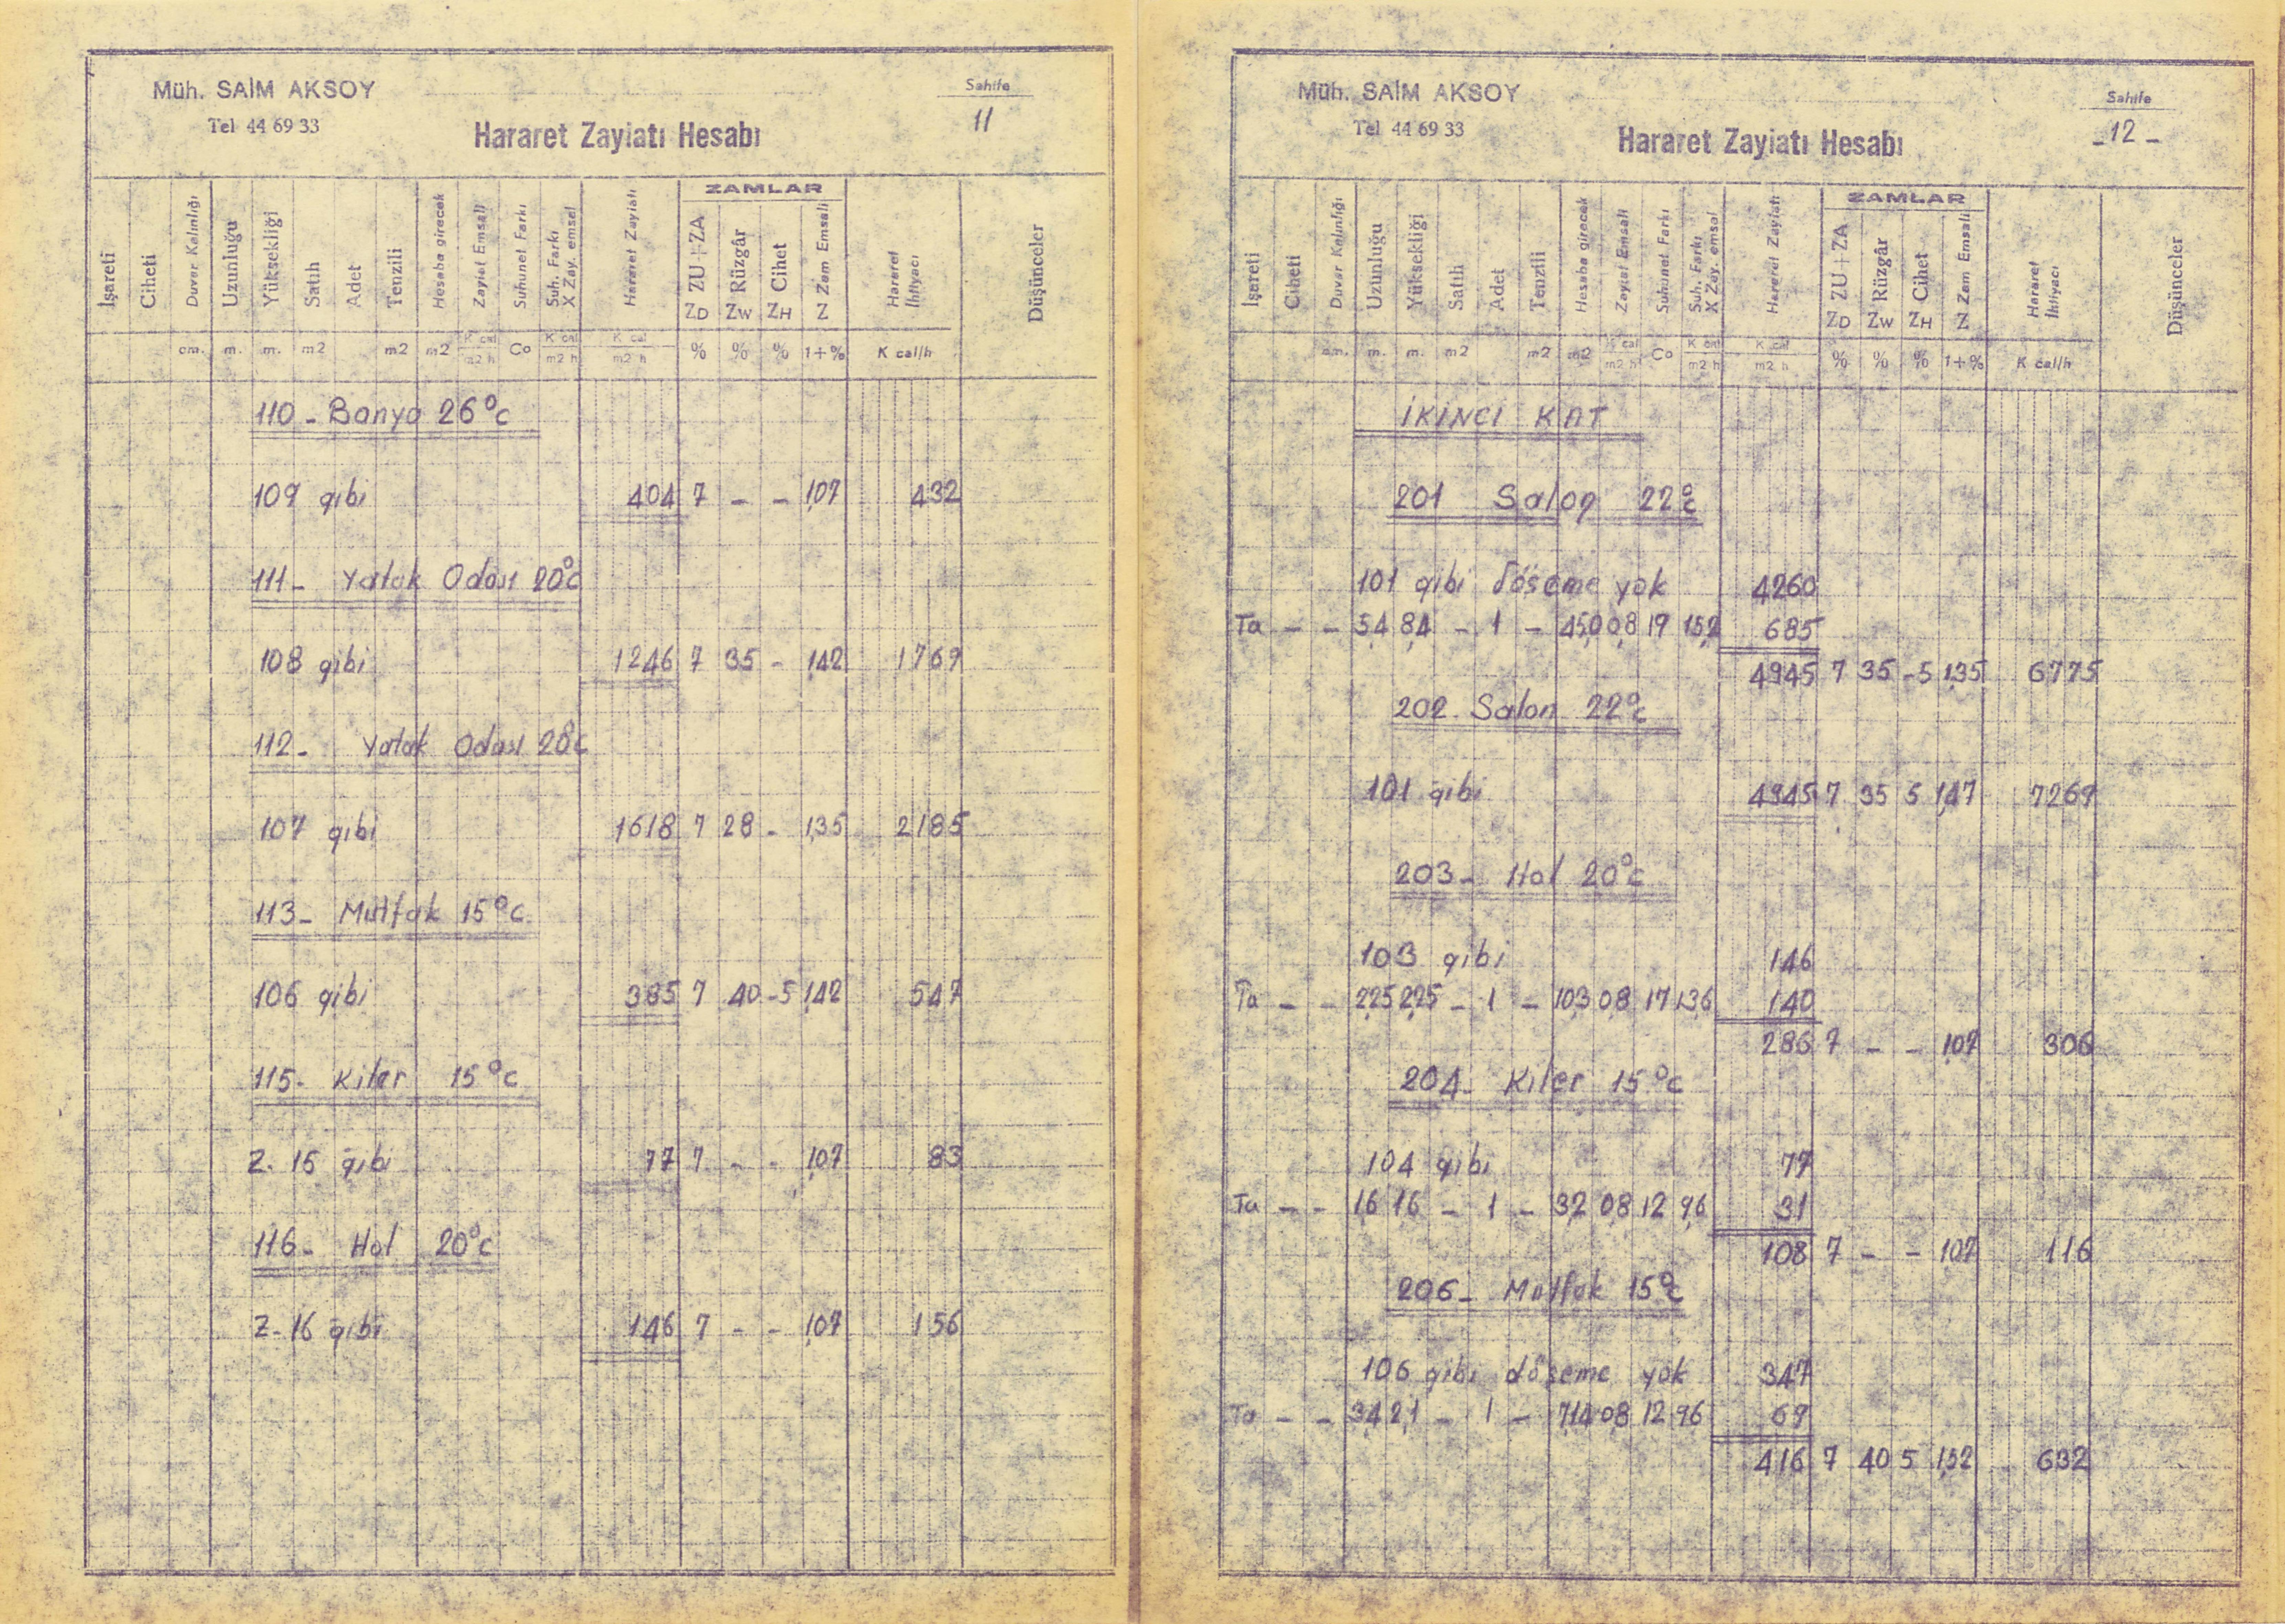 Müh. SAİM AKSOY
Tel 44 69 33
Hararet Zayiatı Hesabı
Sahife
11
İşareti Ciheti Duvar Kalınlığı Uzunluğu Yüksekliği Satıh Adet Tenzili Hesaba girecek Zayiat Emsali Suhunet Farkı Suh. Farkı X Zay. emsal Hararet Zayiatı ZAMLAR ZU+ZA Rüzgâr Cihet Zam Emsali Hararet İhtiyacı Düşünceler
ZD ZW ZH Z
cm. m. m. m2 m2 m2 K cal m2 h Co K cal m2 h K cal m2 h % % % 1+% K cal/h
110 - Banyo 26°c
109 gibi 404 7 - - 1,07 432
111 - Yatak Odası 20°c
108 gibi 1246 7 35 - 1,42 1769
112 - Yatak Odası 20°c
107 gibi 1618 7 28 - 1,35 2185
113 - Mutfak 15°c
106 gibi 385 7 40 -5 1,42 547
115 - Kiler 15°c
Z-15 gibi 77 7 - - 1,07 83
116 - Hol 20°c
Z-16 gibi 146 7 - - 1,07 156
Müh. SAİM AKSOY
Tel 44 69 33
Hararet Zayiatı Hesabı
Sahife
- 12 -
İşareti Ciheti Duvar Kalınlığı Uzunluğu Yüksekliği Satıh Adet Tenzili Hesaba girecek Zayiat Emsali Suhunet Farkı Suh. Farkı X Zay. emsal Hararet Zayiatı ZAMLAR ZU+ZA Rüzgâr Cihet Zam Emsali Hararet İhtiyacı Düşünceler
ZD ZW ZH Z
cm. m. m. m2 m2 m2 K cal m2 h Co K cal m2 h K cal m2 h % % % 1+% K cal/h
İKİNCİ KAT
201 Salon 22°c
101 gibi döşeme yok 4260
Ta - - 5,4 8,4 - 1 - 45,0 0,8 19 15,2 685
4945 7 35 -5 1,35 6775
202. Salon 22°c
101 gibi 4945 7 35 5 1,47 7269
203 - Hol 20°c
103 gibi 146
Ta - - 2,25 2,25 - 1 - 10,3 0,8 17 13,6 140
286 7 - - 1,07 306
204 - Kiler 15°c
104 gibi 77
Ta - - 1,6 1,6 - 1 - 3,2 0,8 12 9,6 31
108 7 - - 1,07 116
206 - Mutfak 15°c
106 gibi döşeme yok 347
Ta - - 3,4 2,1 - 1 - 7,14 0,8 12 9,6 69
416 7 40 5 1,52 632